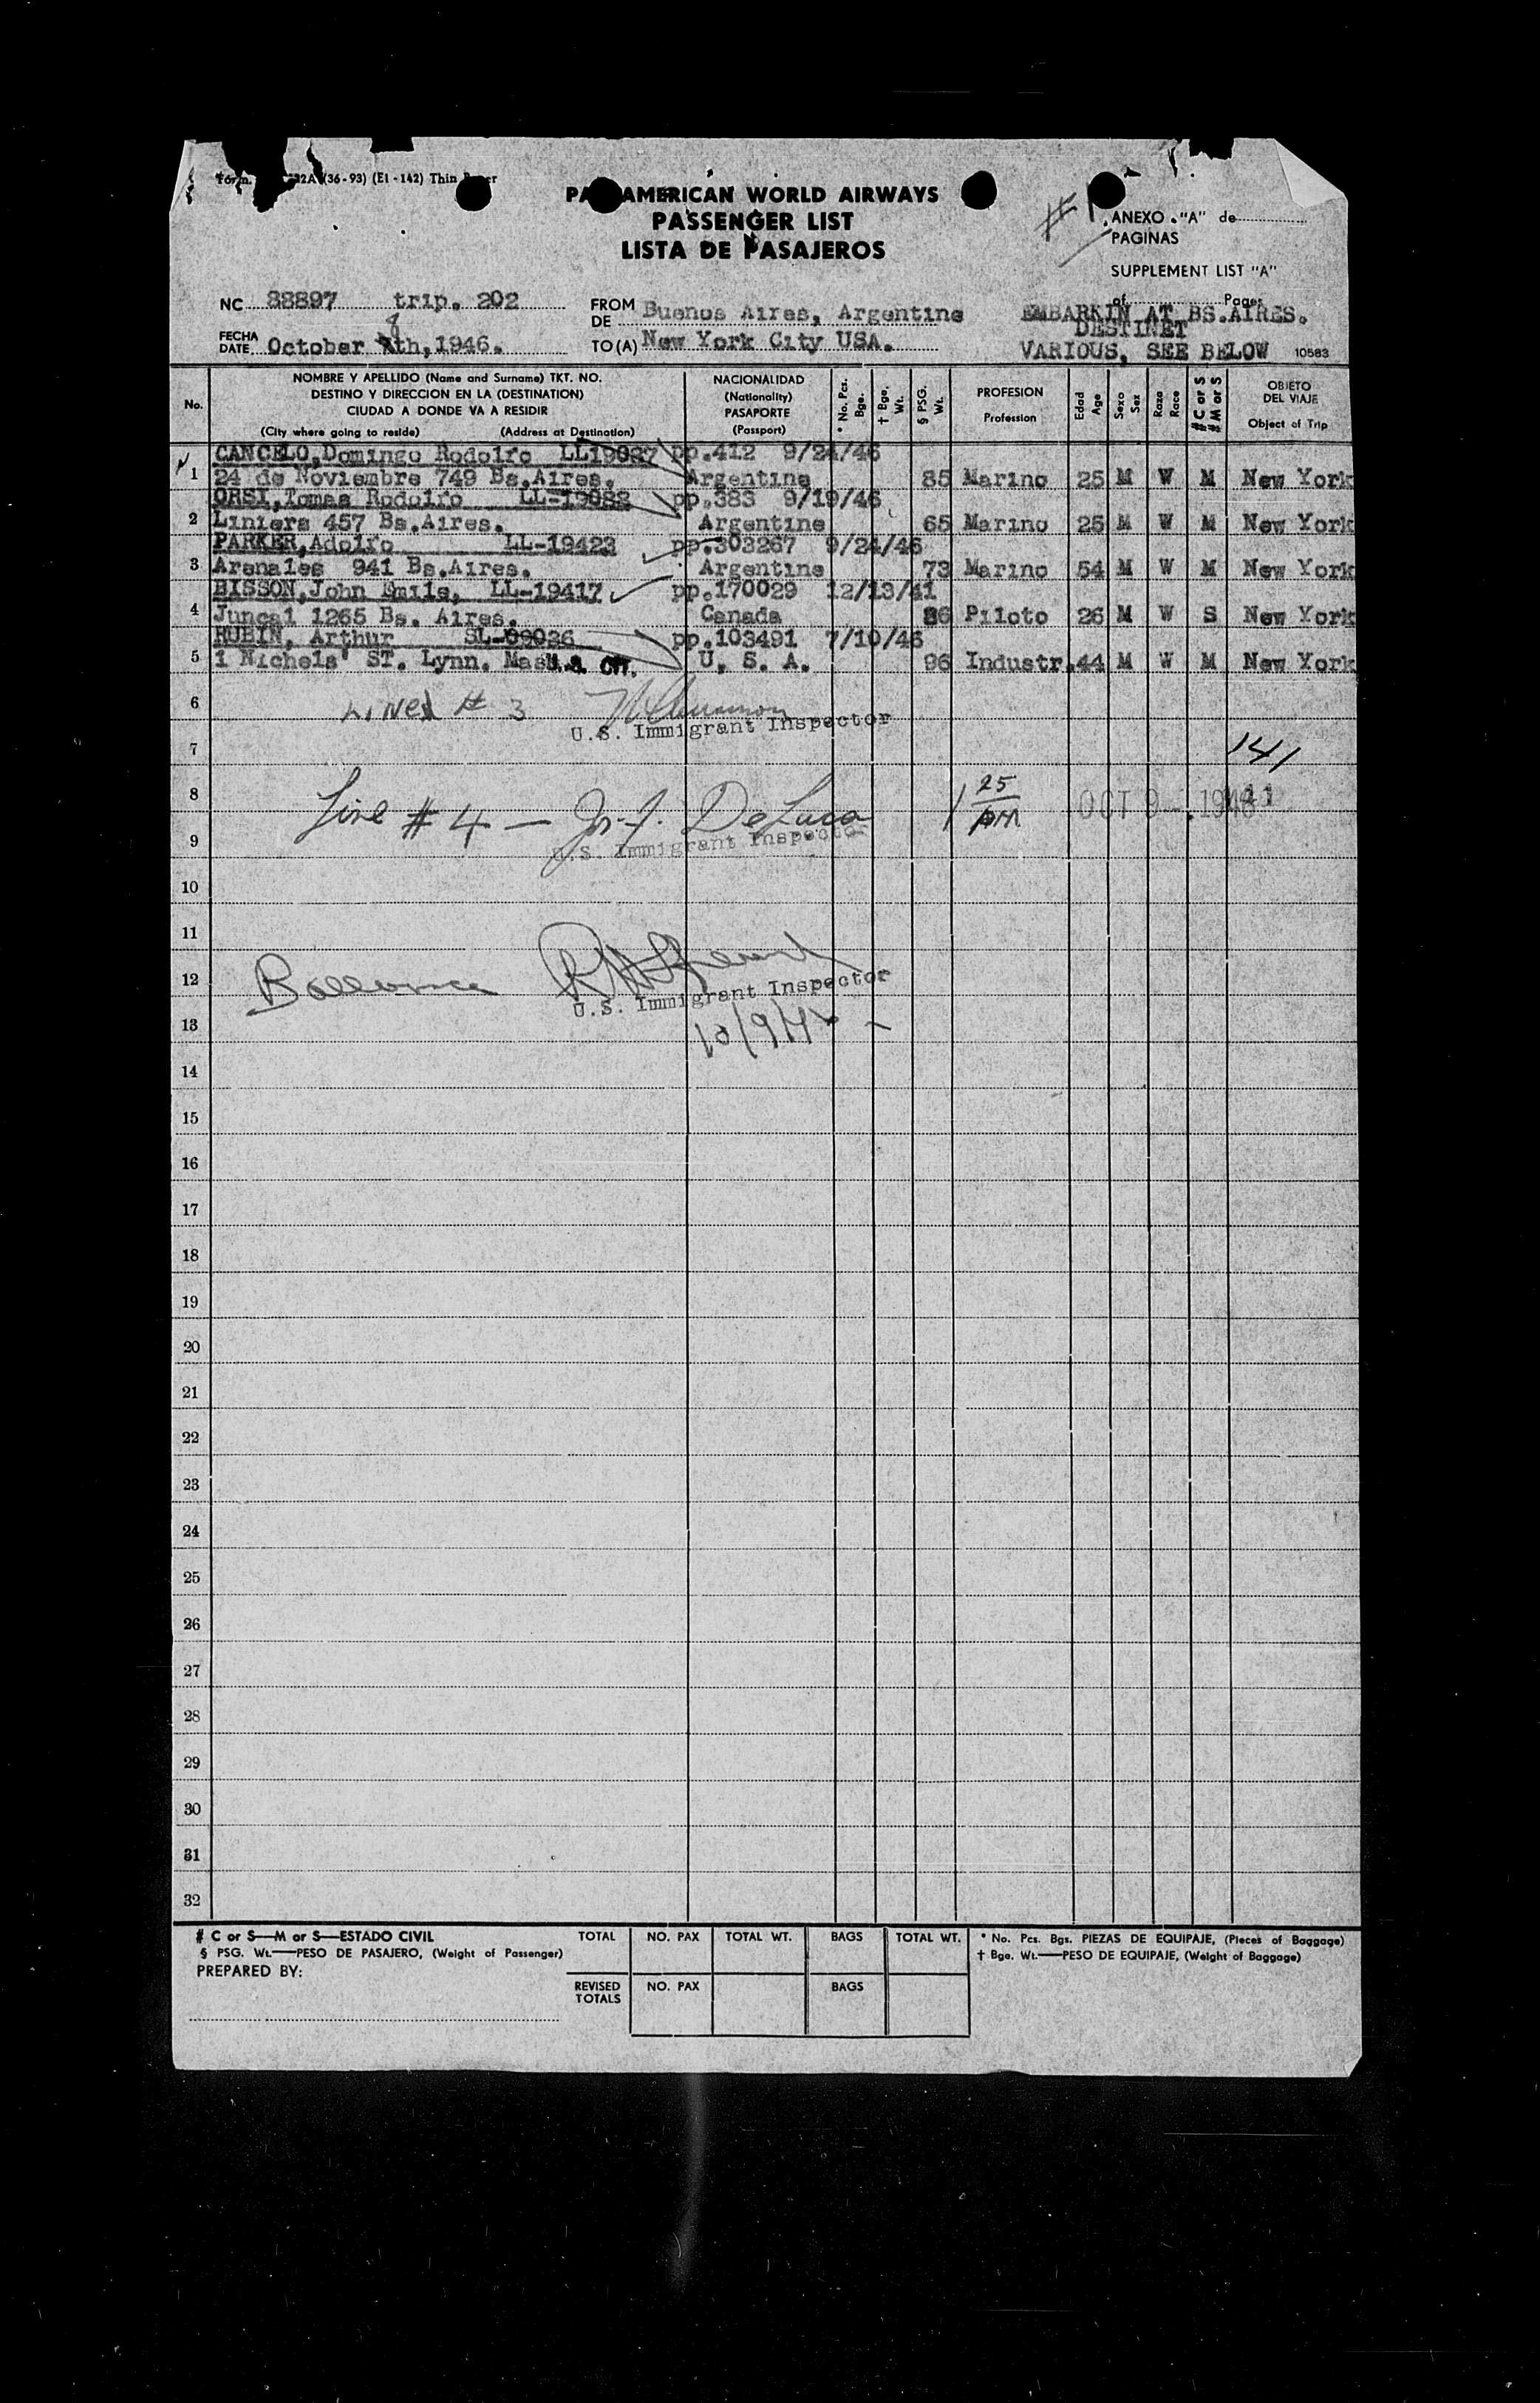 (36-93) (E1-142) Thin
PAN AMERICAN WORLD AIRWAYS
PASSENGER LIST
LISTA DE PASAJEROS
#1
ANEXO "A" de
PAGINAS
SUPPLEMENT LIST "A"
of Pages
NC 88897 trip. 202
FROM
DE Buenos Aires, Argentine
EMBARKIN AT BS.AIRES.
DESTINET
VARIOUS, SEE BELOW 10583
8
FECHA
DATE October th, 1946.
TO (A) New York City USA.
No.
NOMBRE Y APELLIDO (Name and Surname) TKT. NO.
DESTINO Y DIRECCION EN LA (DESTINATION)
CIUDAD A DONDE VA A RESIDIR
(City where going to reside) (Address at Destination)
NACIONALIDAD
(Nationality)
PASAPORTE
(Passport)
* No. Pcs. Bge.
† Bge. Wt.
§ PSG. Wt.
PROFESION
Profession
Edad
Age
Sexo
Sex
Raza
Race
# C or S
# M or S
OBJETO
DEL VIAJE
Object of Trip
CANCELO, Domingo Rodolfo LL19087 pp.412 9/24/46
1 24 de Noviembre 749 Bs.Aires. Argentine 85 Marino 25 M W M New York
ORSI, Tomas Rodolfo LL-19088 pp.383 9/19/46
2 Liniers 457 Bs.Aires. Argentine 65 Marino 25 M W M New York
PARKER, Adolfo LL-19423 pp.303267 9/24/46
3 Arenales 941 Bs.Aires. Argentine 73 Marino 54 M W M New York
BISSON, John Emile, LL-19417 pp.170029 12/13/41
4 Juncal 1265 Bs. Aires. Canada 86 Piloto 26 M W S New York
RUBIN, Arthur SL-09036 pp.103491 7/10/46
5 1 Nichels' ST. Lynn. Mass. U.S. CIT. U. S. A. 96 Industr. 44 M W M New York
6 Line # 3
U.S. Immigrant Inspector
7 141
8 Line # 4 — J. DeLuca 1 25 PM OCT 9 - 1946
9 U.S. Immigrant Inspector
10
11
12 Ballance
U.S. Immigrant Inspector
13 10/9/46 -
14
15
16
17
18
19
20
21
22
23
24
25
26
27
28
29
30
31
32
# C or S—M or S—ESTADO CIVIL
§ PSG. Wt.—PESO DE PASAJERO, (Weight of Passenger)
PREPARED BY:
TOTAL NO. PAX TOTAL WT. BAGS TOTAL WT.
REVISED
TOTALS NO. PAX BAGS
* No. Pcs. Bgs. PIEZAS DE EQUIPAJE, (Pieces of Baggage)
† Bge. Wt.—PESO DE EQUIPAJE, (Weight of Baggage)